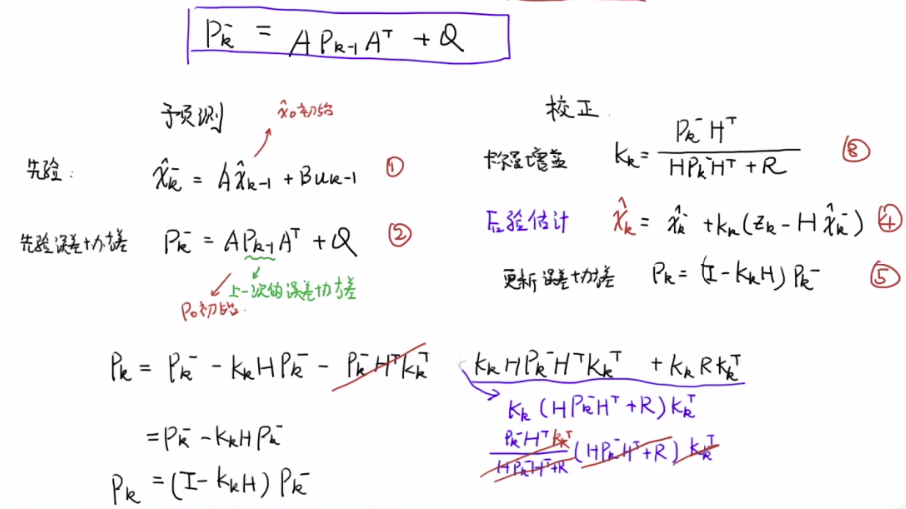 P_k^- = A P_{k-1} A^T + Q
预测
x̂_0初始
先验:
x̂_k^- = A x̂_{k-1} + B u_{k-1} ①
先验误差协方差 P_k^- = A P_{k-1} A^T + Q ②
上一次的误差协方差
P_0初始
校正
卡尔曼增益 K_k = \frac{P_k^- H^T}{H P_k^- H^T + R} ③
后验估计 x̂_k = x̂_k^- + K_k (z_k - H x̂_k^-) ④
更新误差协方差 P_k = (I - K_k H) P_k^- ⑤
P_k = P_k^- - K_k H P_k^- - P_k^- H^T K_k^T K_k H P_k^- H^T K_k^T + K_k R K_k^T
K_k (H P_k^- H^T + R) K_k^T
= P_k^- - K_k H P_k^-
\frac{P_k^- H^T K_k^T}{H P_k^- H^T + R} (H P_k^- H^T + R) K_k^T
P_k = (I - K_k H) P_k^-